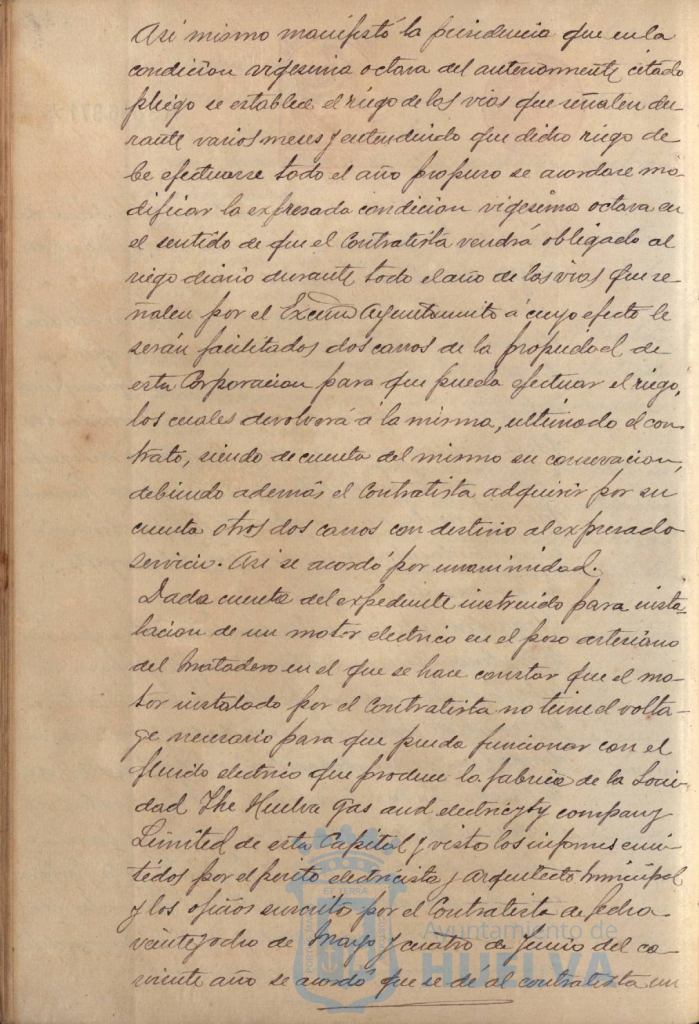 Asi mismo manifestó la presidencia que en la
condicion vigesima octava del anteriormente citado
pliego se establece el riego de las vias que señalen du-
rante varios meses y entendiendo que dicho riego de-
be efectuarse todo el año propuso se acordase mo-
dificar la expresada condicion vigesima octava en
el sentido de que el Contratista vendrá obligado al
riego diario durante todo el año de las vias que se-
ñalen por el Excmo Ayuntamiento á cuyo efecto le
serán facilitados dos carros de la propiedad de
esta Corporacion para que pueda efectuar el riego,
los cuales devolverá á la misma, ultimado el con-
trato, siendo de cuenta del mismo su conservacion,
debiendo además el Contratista adquirir por su
cuenta otros dos carros con destino al expresado
servicio. Asi se acordó por unanimidad.
Dada cuenta del expediente instruido para insta-
lacion de un motor electrico en el poso artesiano
del Matadero en el que se hace constar que el mo-
tor instalado por el Contratista no tiene el volta-
ge necesario para que pueda funcionar con el
fluido electrico que produce la fabrica de la Socie-
dad The Huelva Gas and electricyty company
Limited de esta Capital y visto los informes emi-
tidos por el perito electricista y arquitecto municipal
y los oficios suscrito por el Contratista de fecha
veinte y ocho de Mayo y cuatro de Junio del co-
rriente año se acordó que se dé al contratista un
Ayuntamiento de
HUELVA